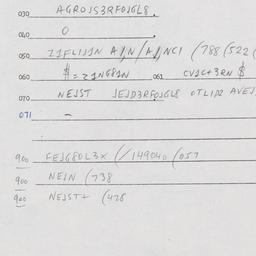 030 AGROJS3RFOJGL8.
040 O
050 Z1FLIJ1N A/N/A/NCI (788(522(
060 $=Z1NG81N 061 CVJC+3RN $
070 NEJST JEJD3RFOJGL8 OTLIP2 AVEJ
071 -
900 FEJG80L3X (/149040(057
900 NEJN (738
900 NEJST+ (478